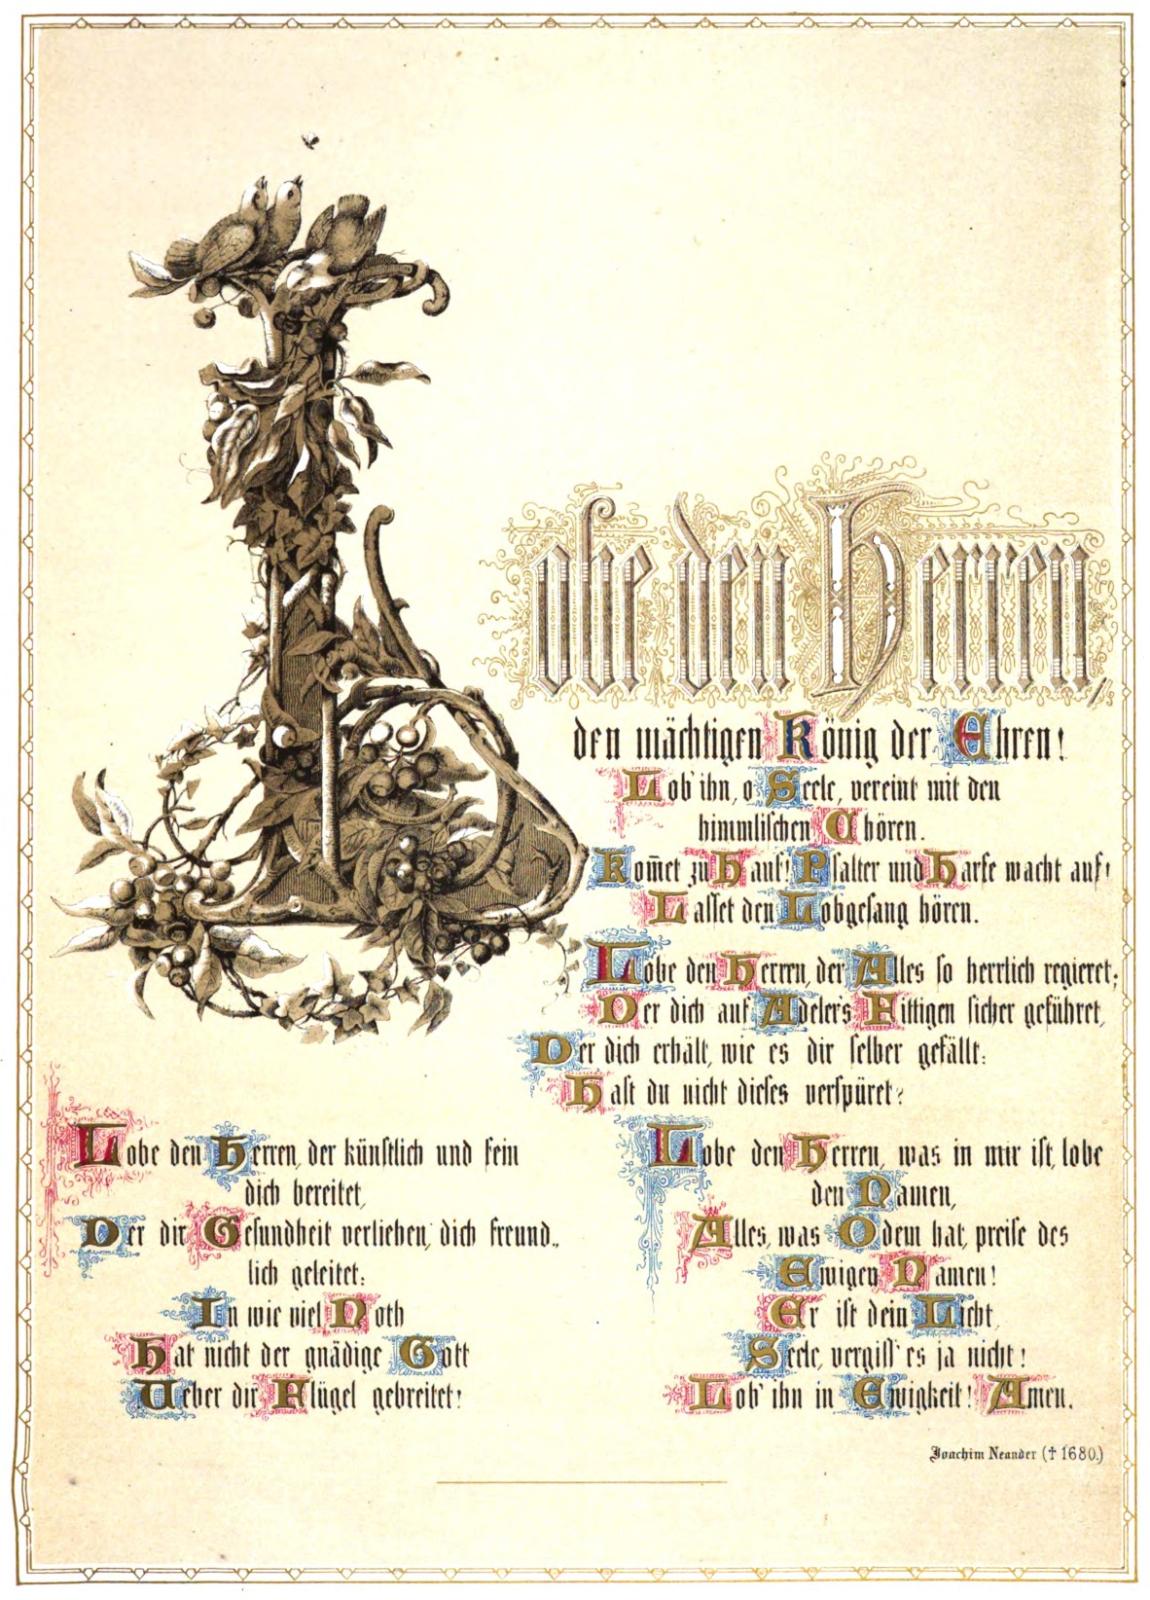 Lobe den Herren,
den mächtigen König der Ehren!
Lob' ihn, o Seele, vereint mit den
himmlischen Chören.
Kom̅et zu Hauf! Psalter und Harfe wacht auf!
Lasset den Lobgesang hören.
Lobe den Herren, der Alles so herrlich regieret;
Der dich auf Adelers Fittigen sicher geführet,
Der dich erhält, wie es dir selber gefällt:
Hast du nicht dieses verspüret?
Lobe den Herren, der künstlich und fein
dich bereitet,
Der dir Gesundheit verliehen, dich freund-
lich geleitet:
In wie viel Noth
Hat nicht der gnädige Gott
Ueber dir Flügel gebreitet!
Lobe den Herren, was in mir ist, lobe
den Namen,
Alles, was Odem hat, preise des
Ewigen Namen!
Er ist dein Licht,
Seele, vergiss' es ja nicht!
Lob' ihn in Ewigkeit! Amen.
Joachim Neander († 1680.)